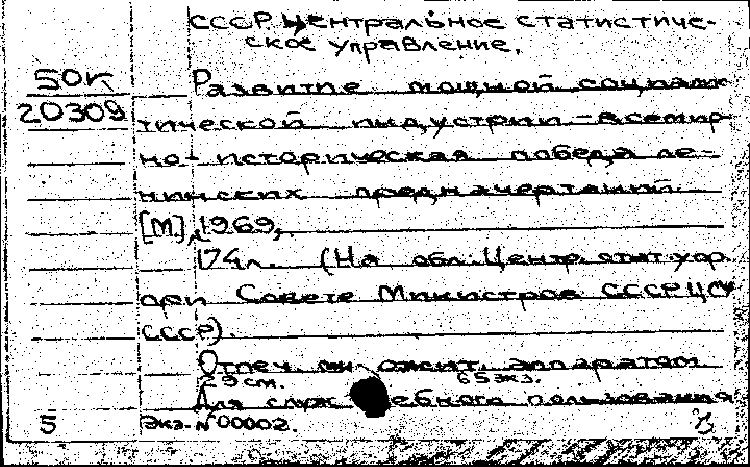 СССР Центральное статистиче-
ское управление.
50к
Развитие мощной социалис-
20309
тической индустрии - всемир-
но-историческая победа ле-
нинских предначертаний.
[М], 1969,
174 л. (На обл. Центр. стат. упр.
при Совете Министров СССР ЦСУ
СССР).
Отпеч. множит. аппаратом
29 см. 65 экз.
Для служебного пользования
5 Экз. № 00002.